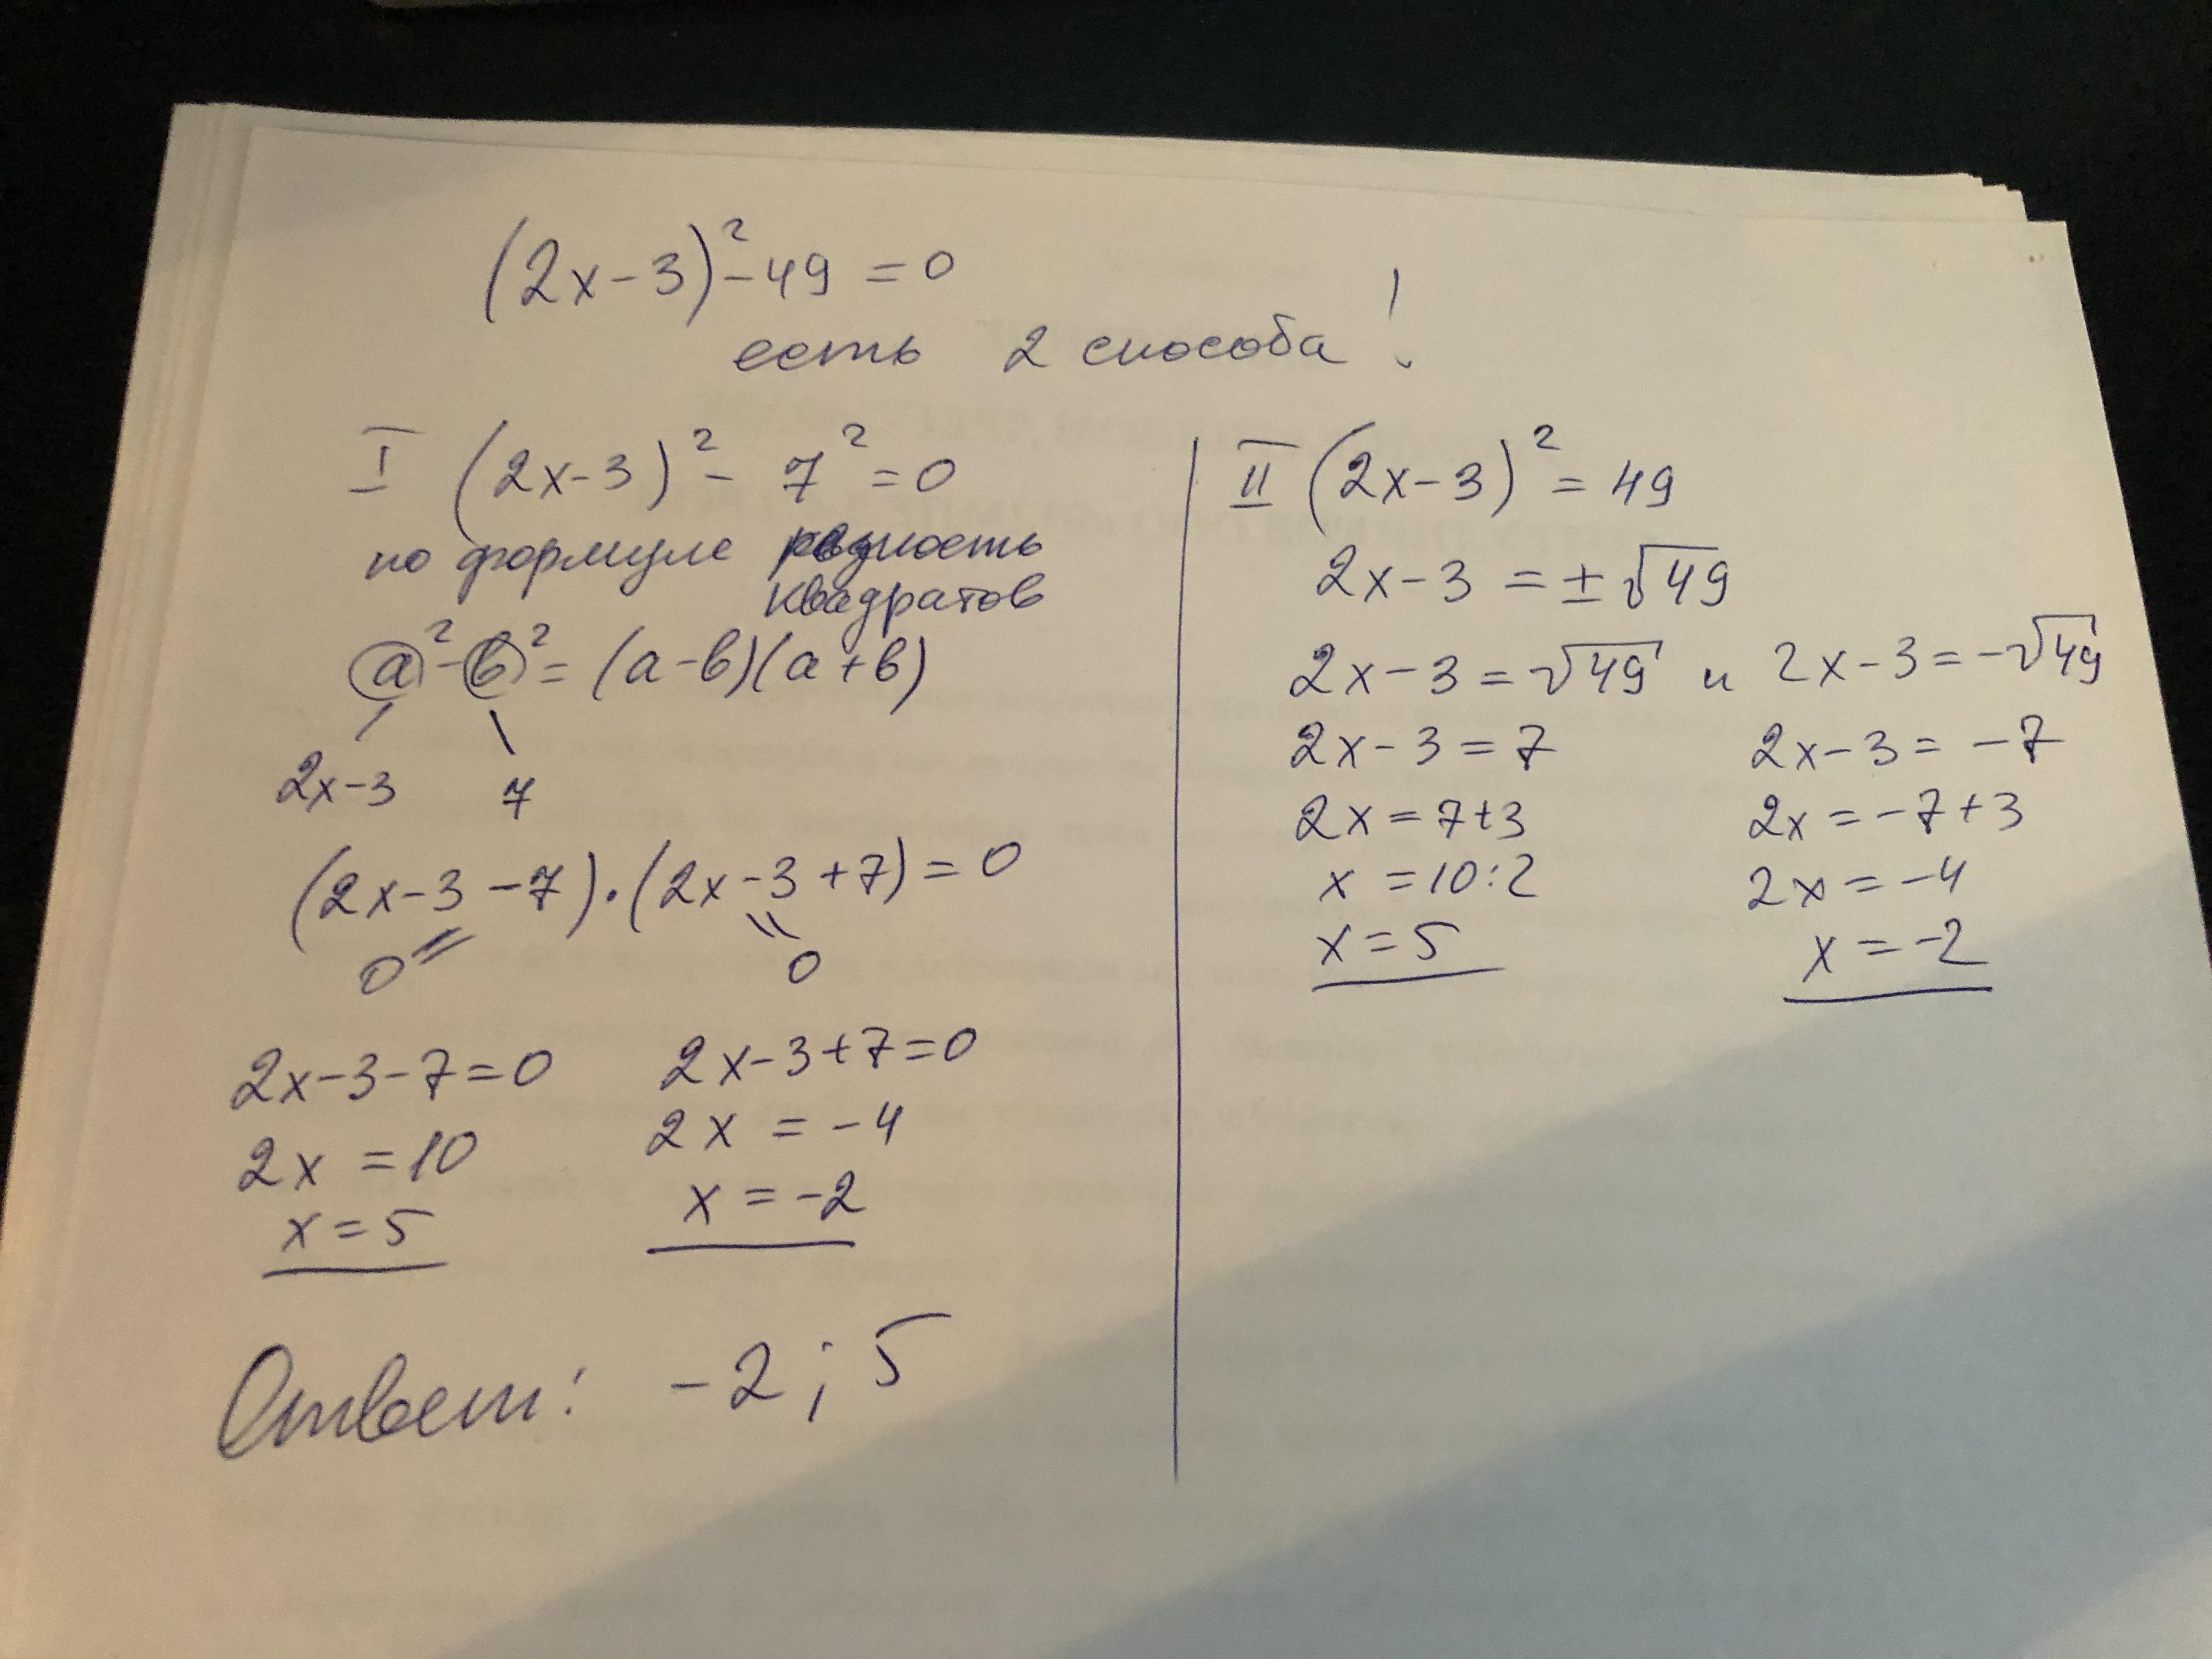 (2x-3)²-49=0
есть 2 способа!
I (2x-3)²- 7²=0
по формуле разность
квадратов
a²-b²=(a-b)(a+b)
2x-3 7
(2x-3-7)·(2x-3+7)=0
0 = = 0
2x-3-7=0 2x-3+7=0
2x=10 2x=-4
x=5 x=-2
Ответ: -2; 5
II (2x-3)²=49
2x-3=±√49
2x-3=√49 и 2x-3=-√49
2x-3=7 2x-3=-7
2x=7+3 2x=-7+3
x=10:2 2x=-4
x=5 x=-2